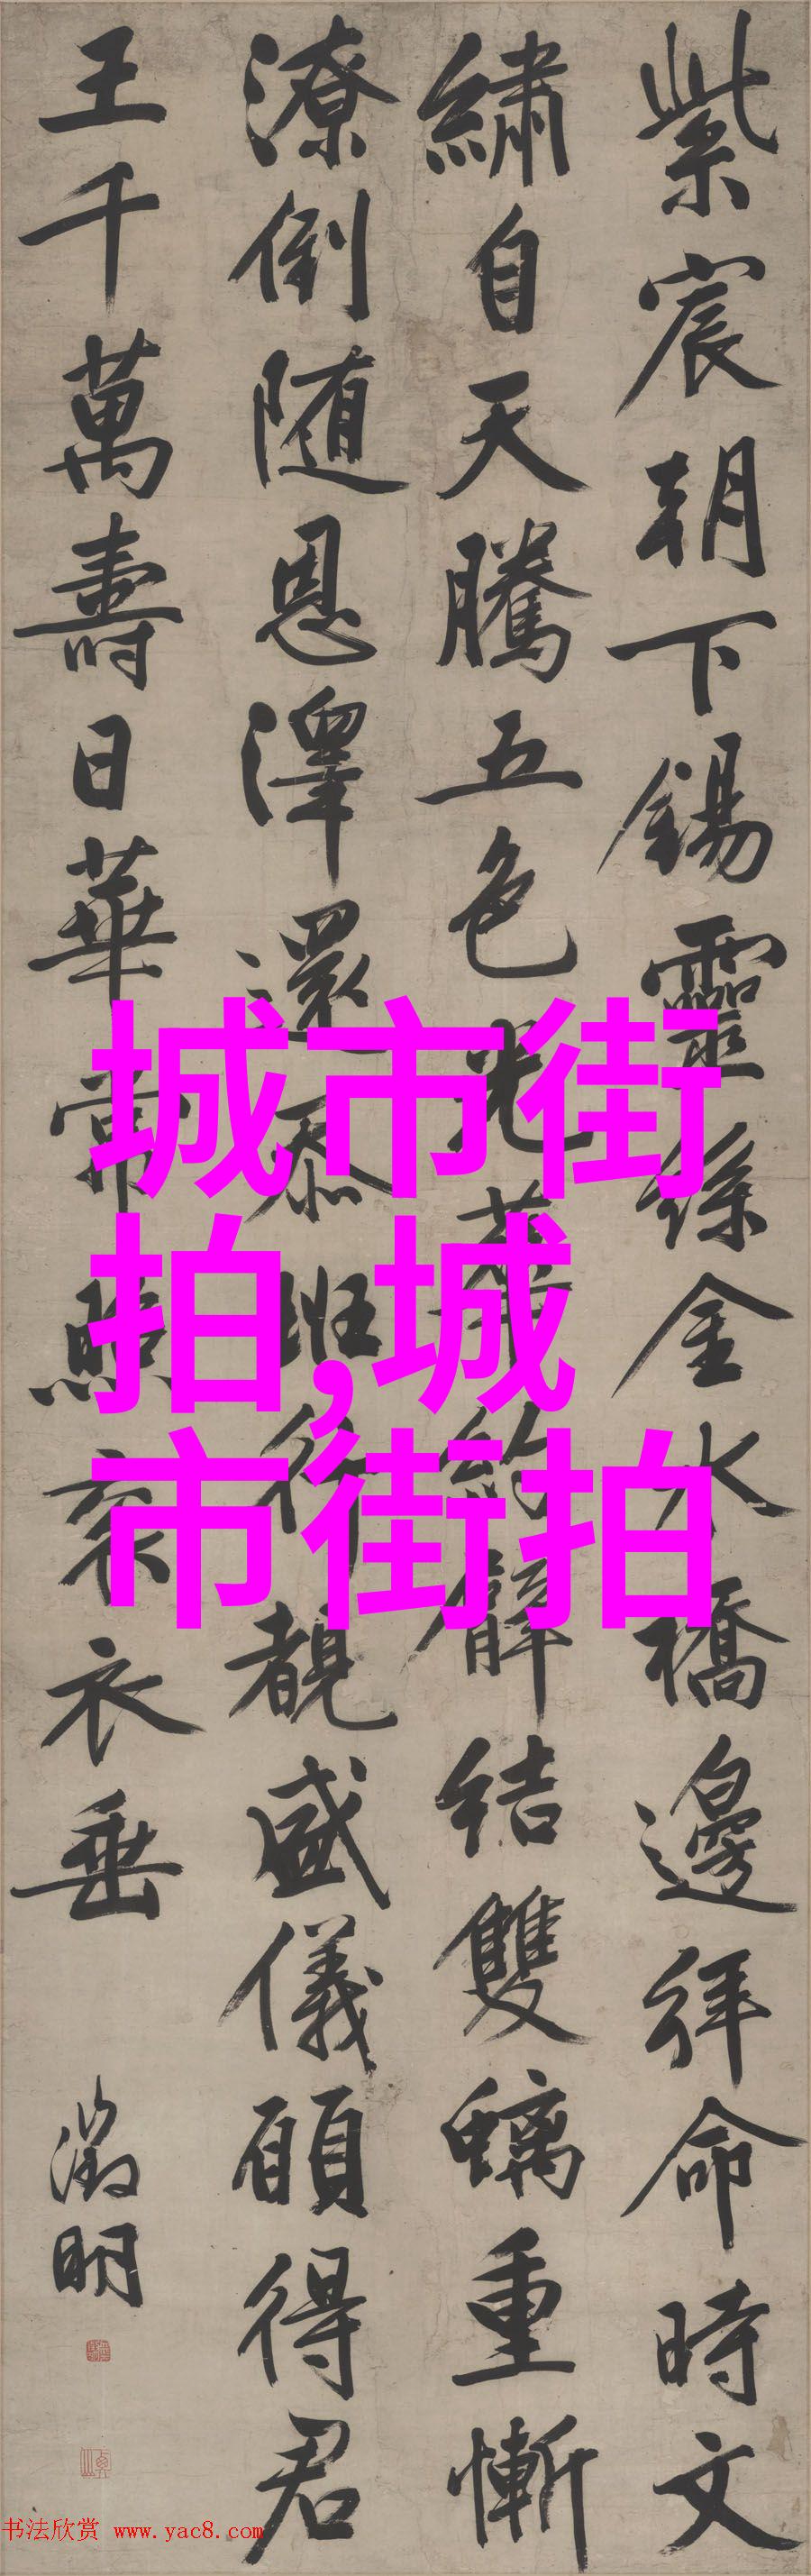 紫宸朝下錫靈絲金水橋邊拜命時文
繡自天騰五色光華約臂結雙螭重慚
潦倒随恩澤還忝班行覩盛儀願得君
王千萬壽日華常照袞衣垂
徵明
城市街
拍,城
市街拍
书法欣赏 www.yac8.com